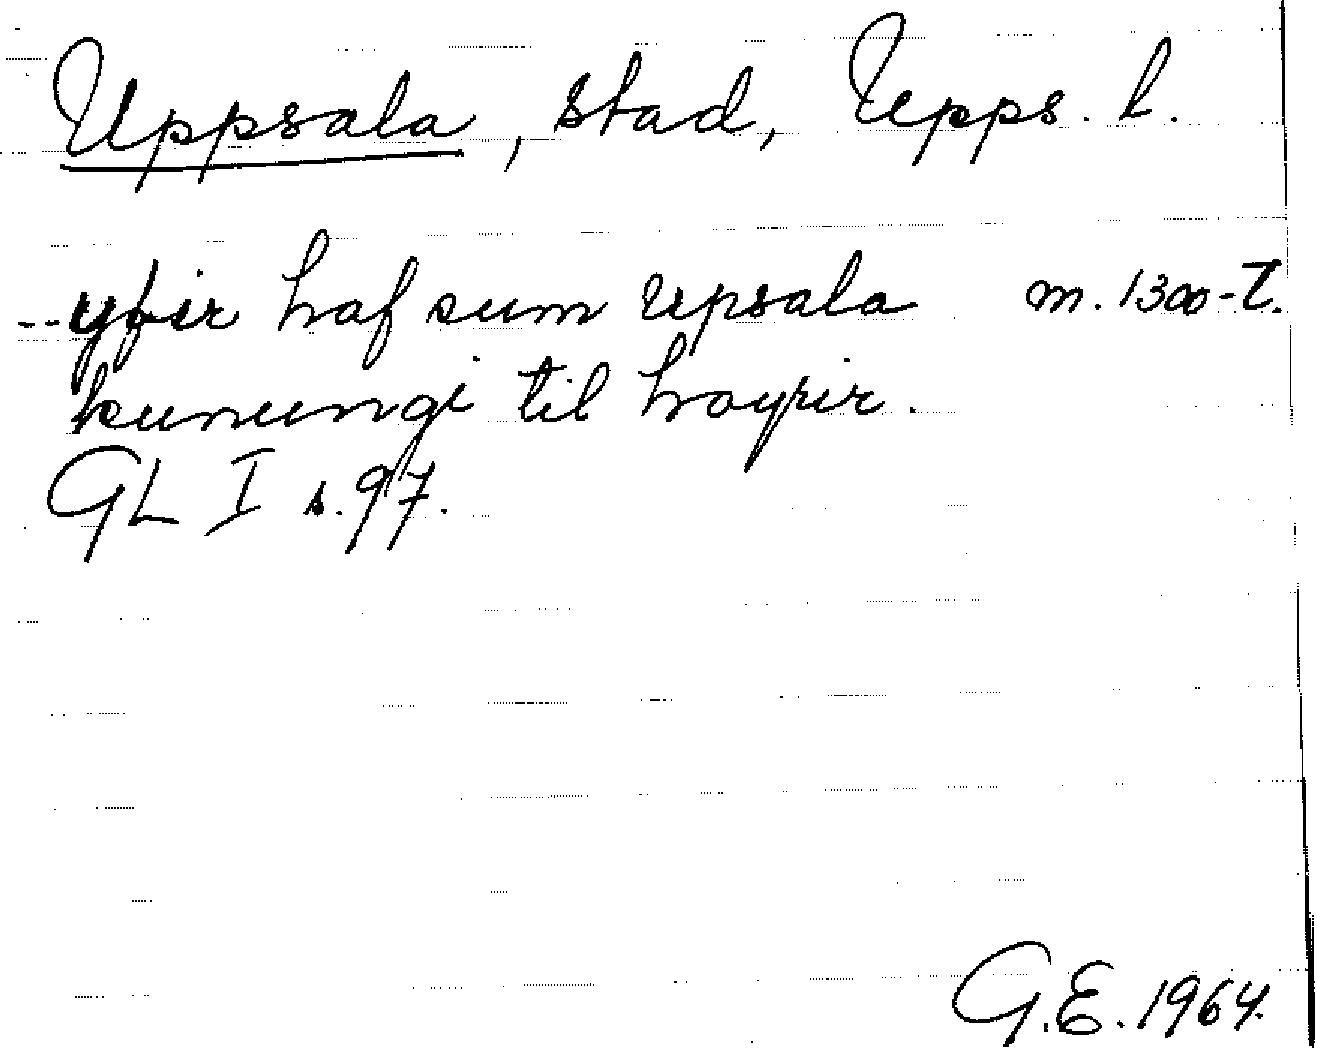 Uppsala, stad, Upps. l.
--yfir haf sum upsala m. 1300-t.
kunungi til hoyrir.
GL I s. 97.
G.E. 1964.